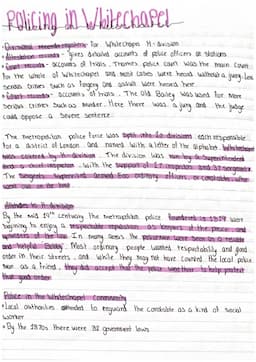 Policing in Whitechapel
for Whitechapel H-division
- gives detailed accounts of police officers or stations
• Court records - accounts of trials. Thames police court was the main court
for the whole of Whitechapel and most cases were heard without a jury. Less
serious crimes such as forgery and assault were heard here.
accounts of trials. The Old Bailey was used for more
serious crimes such as murder. Here there was a jury and the judge
could oppose a severe sentence.
The metropolitan police force was split into 20 divisions each responsible
for a district of London and named with a letter of the alphabet. Whitechapel
was covered by H division. The division was run by a superintendent
and a chief inspector. With the support of 27 inspectors and 37 sergeants.
The sergeants supervised around 500 ordinary officers or constables who
went out on the beat
Attitudes to H division
By the mid 19th century the metropolitan police founded in 1829 were
beginning to enjoy a respectable reputation as keepers of the peace and
upholders of the law. In many areas the policeman were seen as a reliable
and helpful Bobby. Most ordinary people wanted respectability and good
order in their streets, and while they may not have counted the local police
man as a friend, they did accept that the police were there to help protect
that good order.
Police in the Whitechapel Community
• local authorities needed to regard the constable as a kind of social
worker
• By the 1870s there were 32 government laws